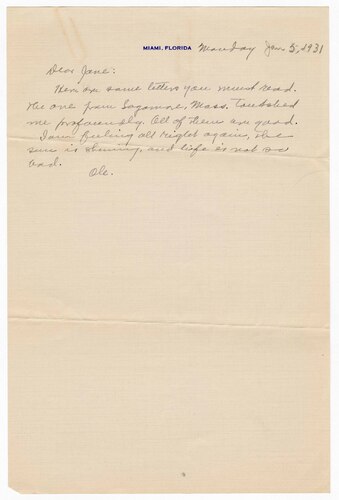 MIAMI, FLORIDA Monday Jan 5, 1931
Dear Jane:
Here are some letters you must read.
The one from Sagamore, Mass. touched
me profoundly. All of them are good.
I am feeling all right again, the
sun is shining, and life is not so
bad.
Ole.